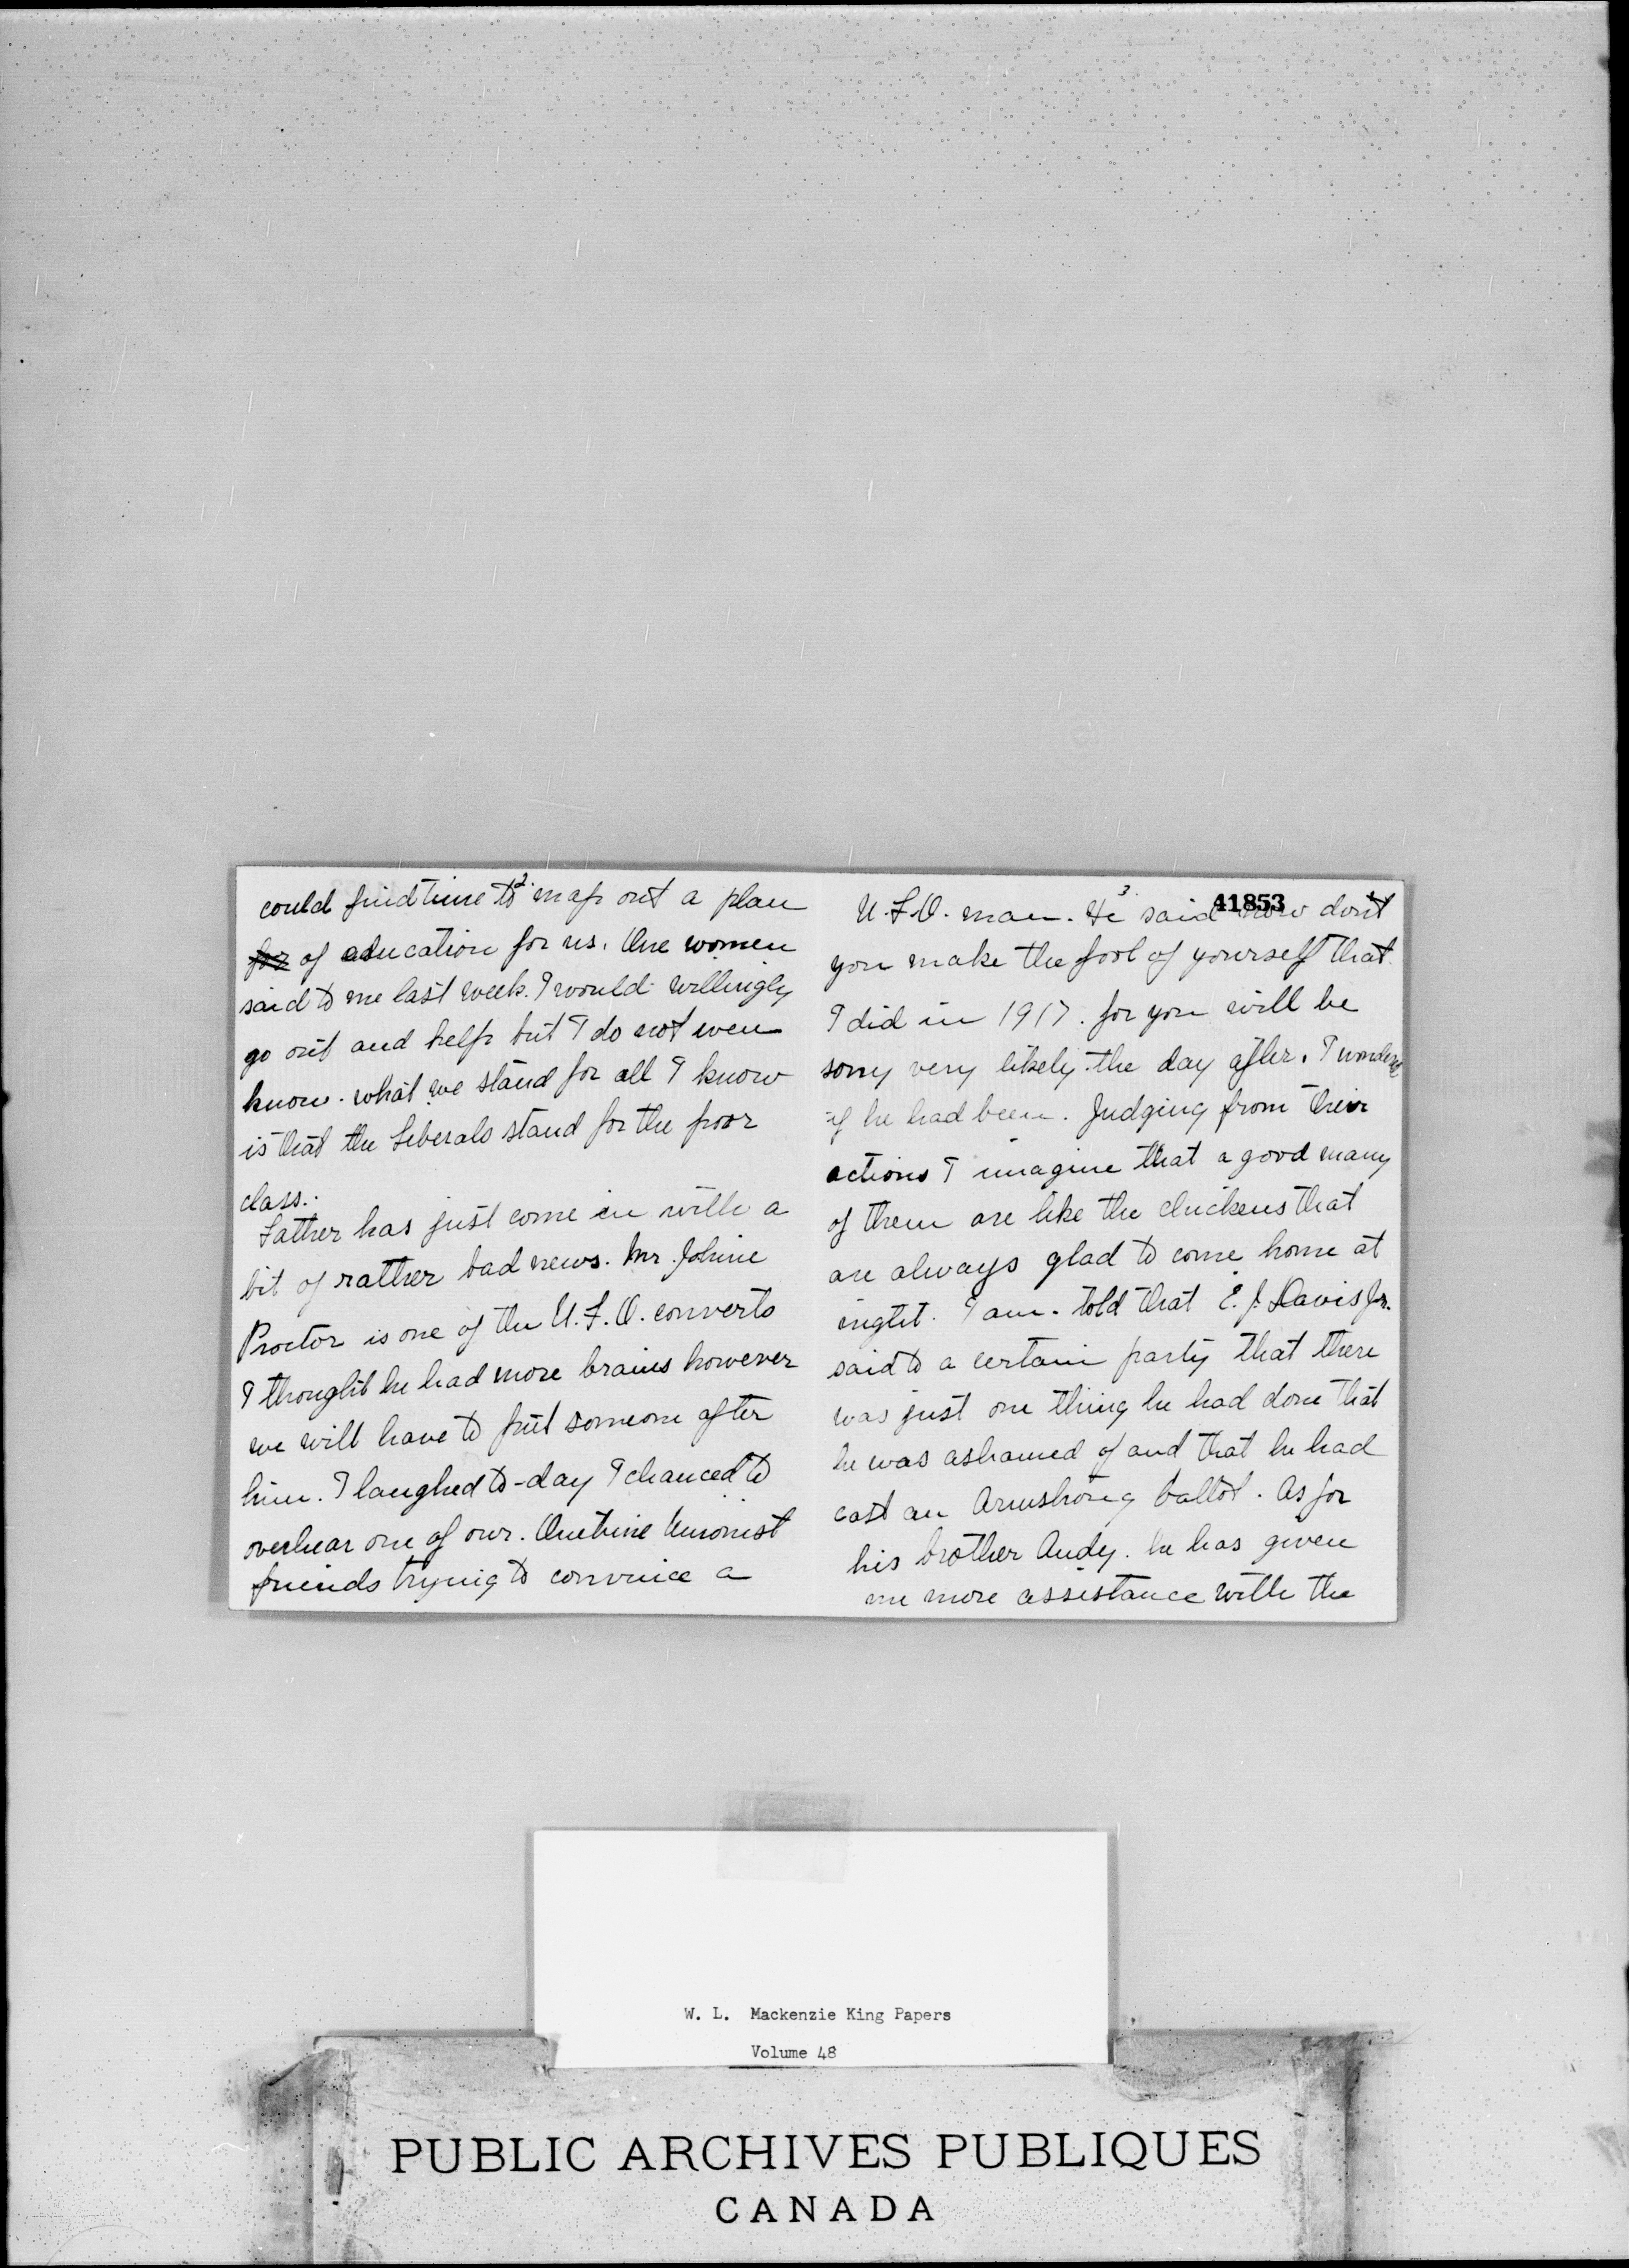 2.
could find time to map out a plan
for of education for us. One women
said to me last week. I would willingly
go out and help but I do not even
know. what we stand for all I know
is that the Liberals stand for the poor
class.
Father has just come in with a
bit of rather bad news. Mr. Johnie
Proctor is one of the U.F.O. converts
I thought he had more brains however
we will have to put someone after
him. I laughed to-day I chanced to
overhear one of our. Onetime Unionist
friends trying to convince a
3.
41853
U.F.O. man. He said now don't
you make the fool of yourself that.
I did in 1917. for you will be
sorry very likely the day after. I wondered
if he had been. Judging from their
actions I imagine that a good many
of them are like the chickens that
are always glad to come home at
night. I am. told that E. J. Davis Jr.
said to a certain party that there
was just one thing he had done that
he was ashamed of and that he had
cast an Armstrong ballot. As for
his brother Andy. he has given
me more assistance with the
W. L. Mackenzie King Papers
Volume 48
PUBLIC ARCHIVES PUBLIQUES
CANADA